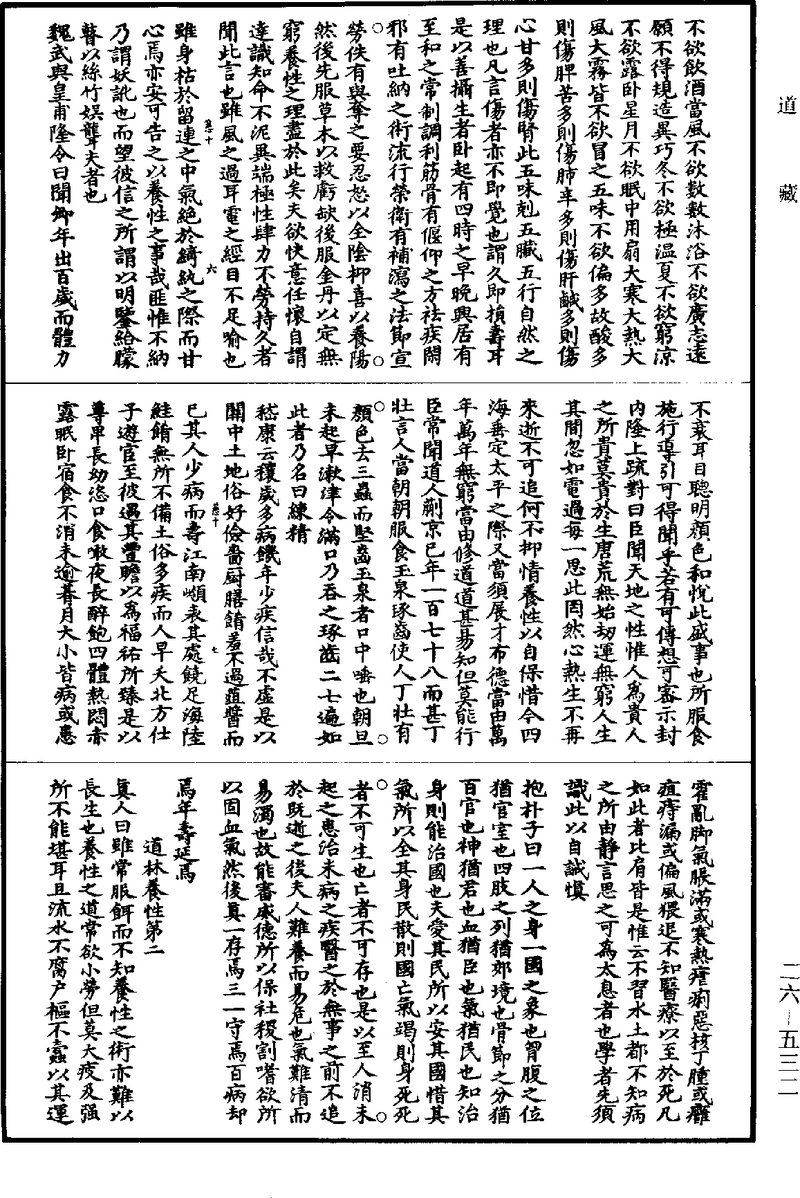 道藏
不欲飲酒當風不欲數數沐浴不欲廣志遠
願不得規造異巧冬不欲極溫夏不欲窮涼
不欲露卧星月不欲眠中用扇大寒大熱大
風大霧皆不欲冒之五味不欲偏多故酸多
則傷脾苦多則傷肺辛多則傷肝鹹多則傷
心甘多則傷腎此五味剋五臟五行自然之
理也凡言傷者亦不即覺也謂久即損壽耳
是以善攝生者卧起有四時之早晚興居有
至和之常制調利筋骨有偃仰之方祛疾閑
邪有吐納之術流行榮衛有補瀉之法節宣
勞佚有與奪之要忍怒以全陰抑喜以養陽
然後先服草木以救虧缺後服金丹以定無
窮養性之理盡於此矣夫欲快意任懷自謂
達識知命不泥異端極性肆力不勞持久者
聞此言也雖風之過耳電之經目不足喻也
卷十 六
雖身枯於留連之中氣絕於綺紈之際而甘
心焉亦安可告之以養性之事哉匪惟不納
乃謂妖訛也而望彼信之所謂以明鑒給矇
瞽以絲竹娛聾夫者也
魏武與皇甫隆令曰聞卿年出百歲而體力
不衰耳目聰明顏色和悅此盛事也所服食
施行導引可得聞乎若有可傳想可密示封
內隆上疏對曰臣聞天地之性惟人為貴人
之所貴莫貴於生唐荒無始劫運無窮人生
其間忽如電過每一思此罔然心熱生不再
來逝不可追何不抑情養性以自保惜今四
海垂定太平之際又當須展才布德當由萬
年萬年無窮當由修道道甚易知但莫能行
臣常聞道人蒯京已年一百七十八而甚丁
壯言人當朝朝服食玉泉琢齒使人丁壯有
顏色去三蟲而堅齒玉泉者口中唾也朝旦
未起早漱津令滿口乃吞之琢齒二七遍如
此者乃名曰練精
嵇康云穰歲多病饑年少疾信哉不虛是以
關中土地俗好儉嗇厨膳餚羞不過葅醬而
卷十 七
已其人少病而壽江南嶺表其處饒足海陸
鮭餚無所不備土俗多疾而人早夭北方仕
子遊宦至彼遇其豐贍以為福祐所臻是以
尊卑長幼恣口食噉夜長醉飽四體熱悶赤
露眠卧宿食不消未逾朞月大小皆病或患
霍亂脚氣脹滿或寒熱瘧痢惡核丁腫或癰
疽痔漏或偏風猥退不知醫療以至於死凡
如此者比肩皆是惟云不習水土都不知病
之所由靜言思之可為太息者也學者先須
識此以自誡慎
抱朴子曰一人之身一國之象也胷腹之位
猶宮室也四肢之列猶郊境也骨節之分猶
百官也神猶君也血猶臣也氣猶民也知治
身則能治國也夫愛其民所以安其國惜其
氣所以全其身民散則國亡氣竭則身死死
者不可生也亡者不可存也是以至人消未
起之患治未病之疾醫之於無事之前不追
於既逝之後夫人難養而易危也氣難清而
易濁也故能審威德所以保社稷割嗜欲所
以固血氣然後真一存焉三一守焉百病却
焉年壽延焉
道林養性第二
真人曰雖常服餌而不知養性之術亦難以
長生也養性之道常欲小勞但莫大疲及强
所不能堪耳且流水不腐户樞不蠹以其運
二六－五三二